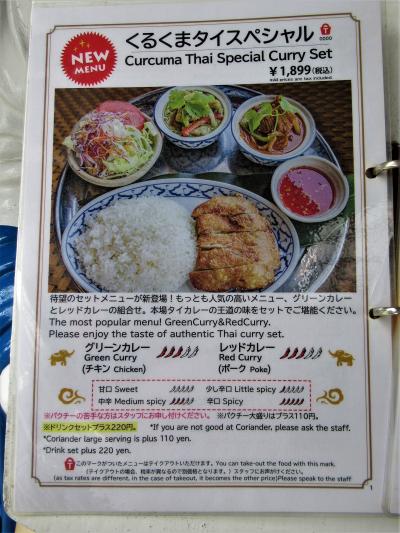 NEW
MENU
くるくまタイスペシャル
Curcuma Thai Special Curry Set
￥1,899(税込)
待望のセットメニューが新登場！もっとも人気の高いメニュー、グリーンカレー
とレッドカレーの組合せ。本場タイカレーの王道の味をセットでご堪能ください。
The most popular menu! GreenCurry&RedCurry.
Please enjoy the taste of authentic Thai curry set.
グリーンカレー
Green Curry
(チキン Chicken)
レッドカレー
Red Curry
(ポーク Poke)
甘口 Sweet
少し辛口 Little spicy
中辛 Medium spicy
辛口 Spicy
※パクチーの苦手な方はスタッフにお申し付けください。 ※パクチー大盛りはプラス110円。
※ドリンクセットプラス220円。 *If you are not good at Coriander, please ask the staff.
*Coriander large serving is plus 110 yen.
*Drink set plus 220 yen.
このマークがついたメニューはテイクアウトいただけます。You can take-out the food with this mark.
(テイクアウトの場合、税率が異なるので別価格となります。) スタッフにお声がけください。
(as tax rates are different, in the case of takeout, it becomes the other price)Please speak to the staff
1